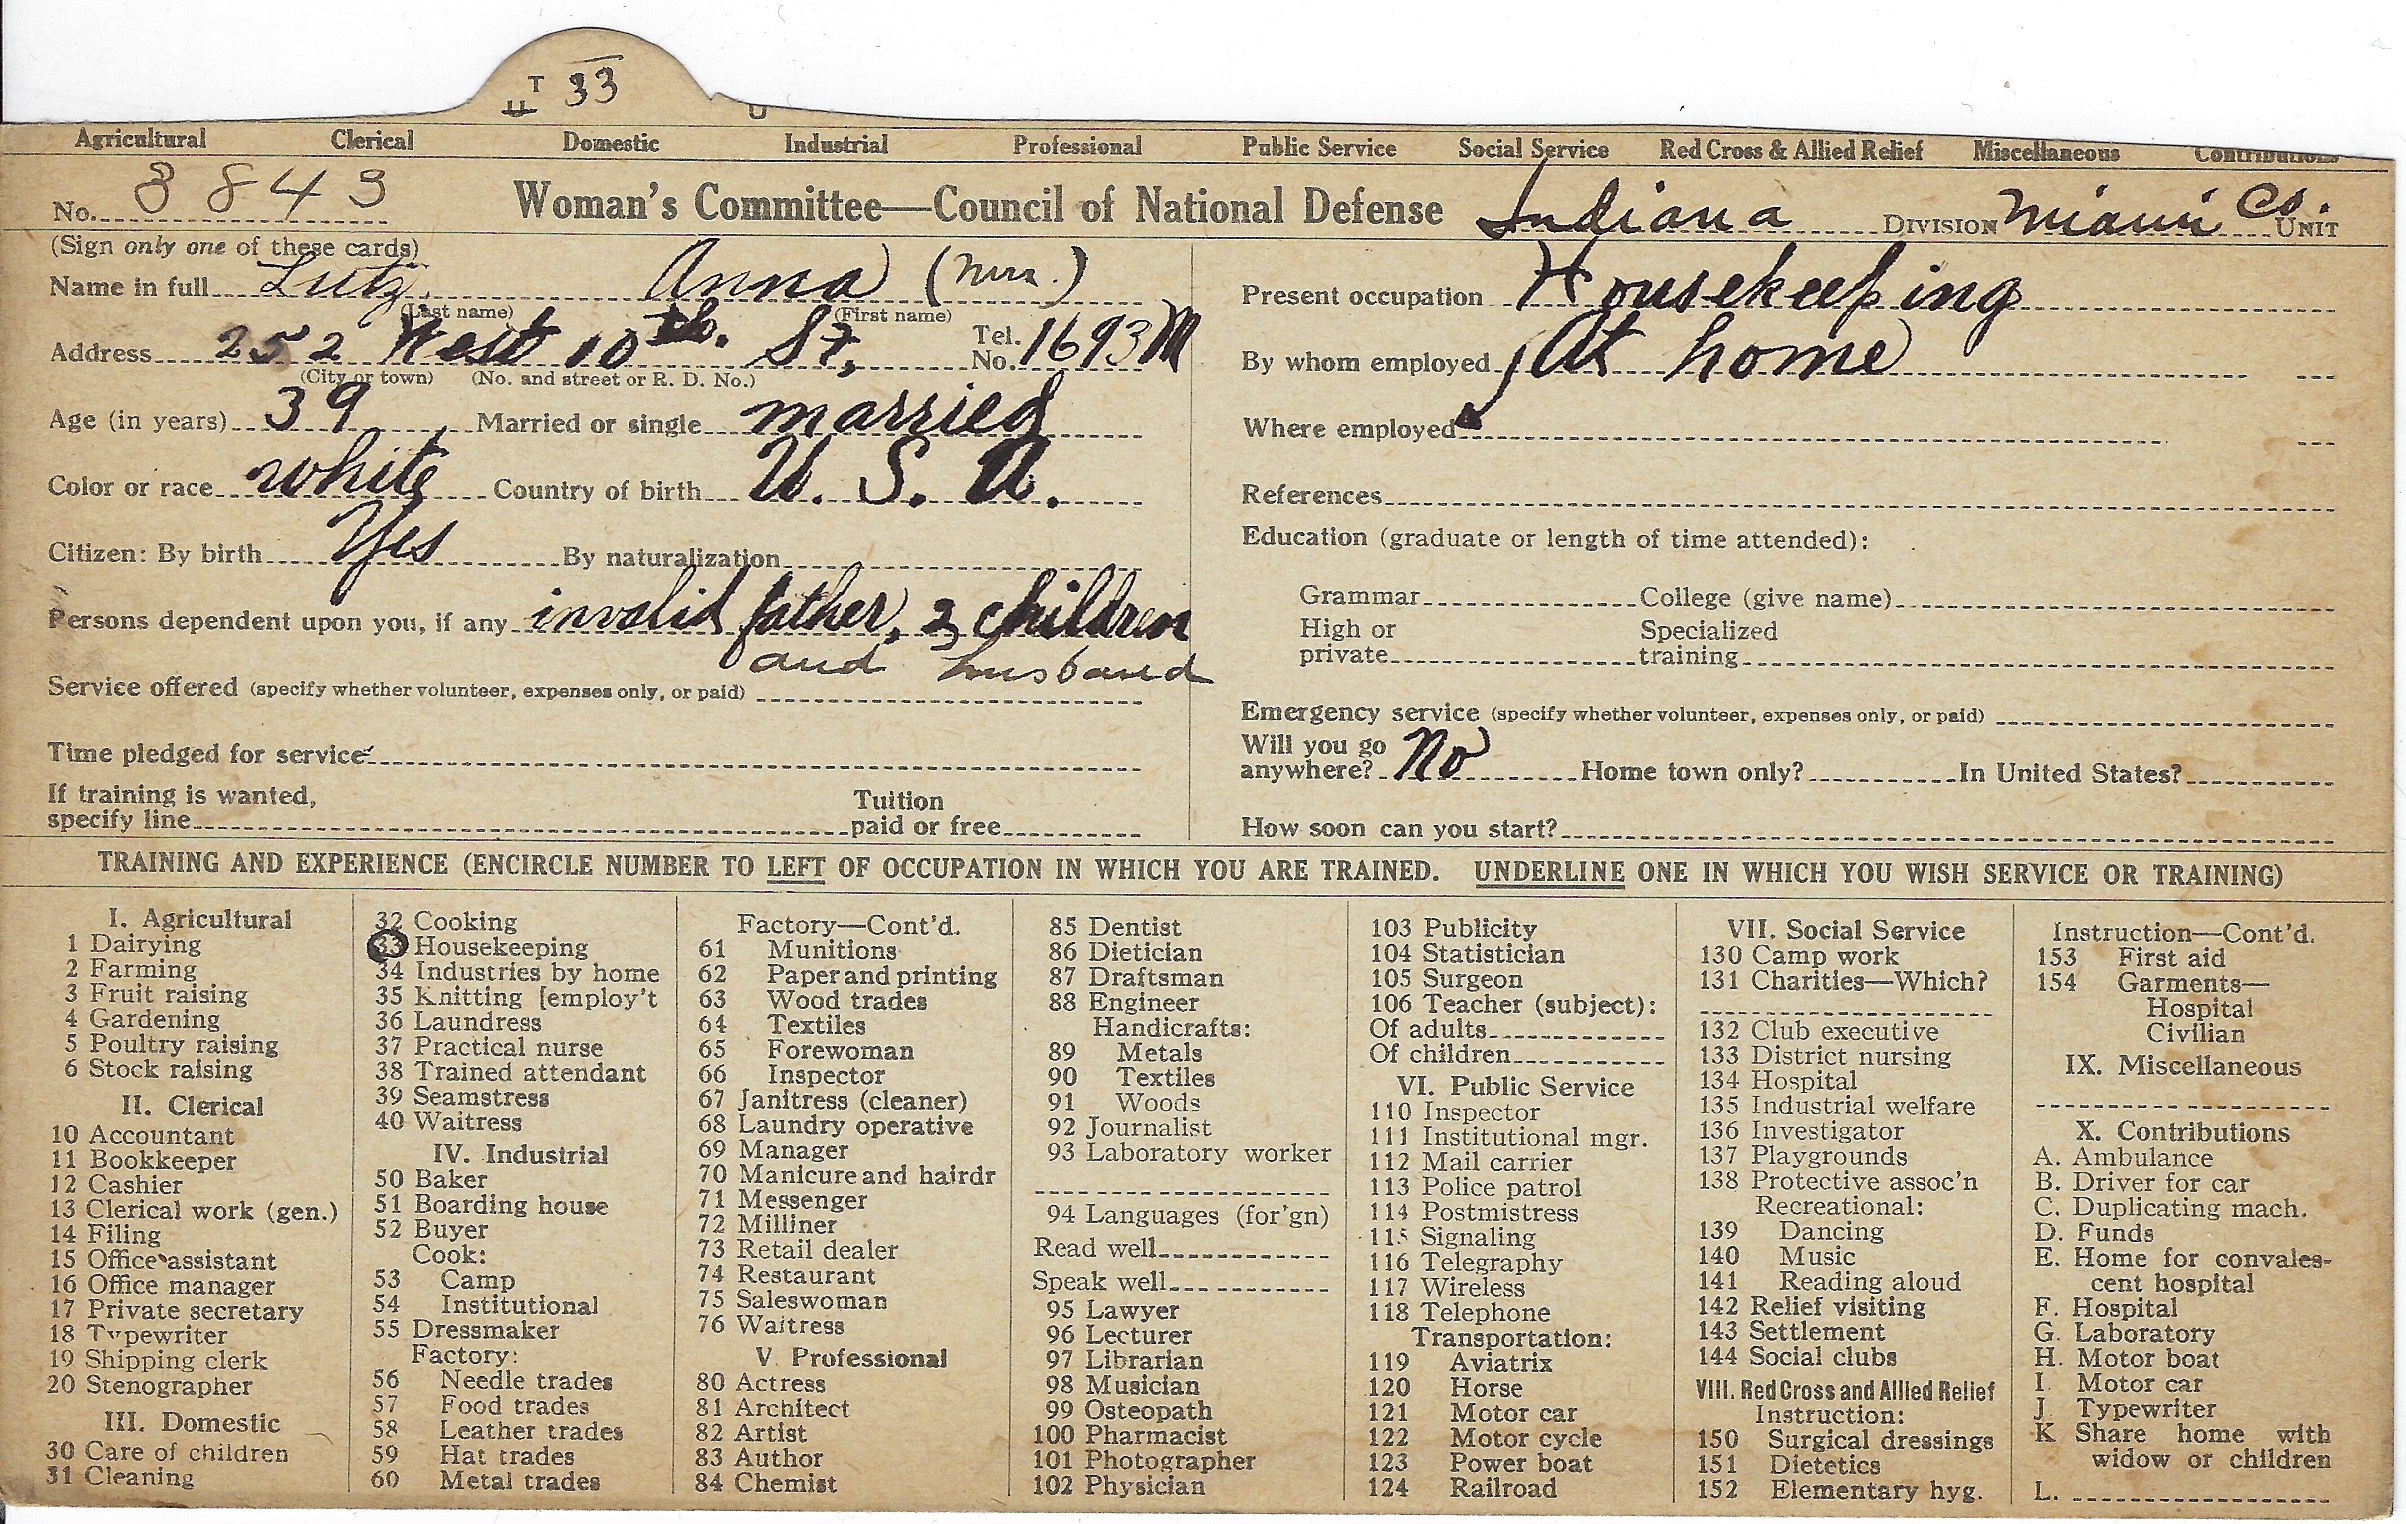 T 33
U
Agricultural Clerical Domestic Industrial Professional Public Service Social Service Red Cross & Allied Relief Miscellaneous Contributions
No. 3843 Woman's Committee—Council of National Defense Indiana DIVISION Miami Co. UNIT
(Sign only one of these cards)
Name in full Lutz, Anna (Mrs.)
(Last name) (First name)
Address 252 West 10th. St, Tel. No. 1693M
(City or town) (No. and street or R. D. No.)
Age (in years) 39 Married or single married
Color or race white Country of birth U. S. A.
Citizen: By birth Yes By naturalization
Persons dependent upon you, if any invalid father, 2 children
and husband
Service offered (specify whether volunteer, expenses only, or paid)
Time pledged for service
If training is wanted,
specify line Tuition paid or free
Present occupation Housekeeping
By whom employed At home
Where employed
References
Education (graduate or length of time attended):
Grammar College (give name)
High or private Specialized training
Emergency service (specify whether volunteer, expenses only, or paid)
Will you go anywhere? No Home town only? In United States?
How soon can you start?
TRAINING AND EXPERIENCE (ENCIRCLE NUMBER TO LEFT OF OCCUPATION IN WHICH YOU ARE TRAINED. UNDERLINE ONE IN WHICH YOU WISH SERVICE OR TRAINING)
I. Agricultural
1 Dairying
2 Farming
3 Fruit raising
4 Gardening
5 Poultry raising
6 Stock raising
II. Clerical
10 Accountant
11 Bookkeeper
12 Cashier
13 Clerical work (gen.)
14 Filing
15 Office assistant
16 Office manager
17 Private secretary
18 Typewriter
19 Shipping clerk
20 Stenographer
III. Domestic
30 Care of children
31 Cleaning
32 Cooking
33 Housekeeping
34 Industries by home
35 Knitting [employ't
36 Laundress
37 Practical nurse
38 Trained attendant
39 Seamstress
40 Waitress
IV. Industrial
50 Baker
51 Boarding house
52 Buyer
Cook:
53 Camp
54 Institutional
55 Dressmaker
Factory:
56 Needle trades
57 Food trades
58 Leather trades
59 Hat trades
60 Metal trades
Factory—Cont'd.
61 Munitions
62 Paper and printing
63 Wood trades
64 Textiles
65 Forewoman
66 Inspector
67 Janitress (cleaner)
68 Laundry operative
69 Manager
70 Manicure and hairdr
71 Messenger
72 Milliner
73 Retail dealer
74 Restaurant
75 Saleswoman
76 Waitress
V. Professional
80 Actress
81 Architect
82 Artist
83 Author
84 Chemist
85 Dentist
86 Dietician
87 Draftsman
88 Engineer
Handicrafts:
89 Metals
90 Textiles
91 Woods
92 Journalist
93 Laboratory worker
94 Languages (for'gn)
Read well
Speak well
95 Lawyer
96 Lecturer
97 Librarian
98 Musician
99 Osteopath
100 Pharmacist
101 Photographer
102 Physician
103 Publicity
104 Statistician
105 Surgeon
106 Teacher (subject):
Of adults
Of children
VI. Public Service
110 Inspector
111 Institutional mgr.
112 Mail carrier
113 Police patrol
114 Postmistress
115 Signaling
116 Telegraphy
117 Wireless
118 Telephone
Transportation:
119 Aviatrix
120 Horse
121 Motor car
122 Motor cycle
123 Power boat
124 Railroad
VII. Social Service
130 Camp work
131 Charities—Which?
132 Club executive
133 District nursing
134 Hospital
135 Industrial welfare
136 Investigator
137 Playgrounds
138 Protective assoc'n
Recreational:
139 Dancing
140 Music
141 Reading aloud
142 Relief visiting
143 Settlement
144 Social clubs
VIII. Red Cross and Allied Relief
Instruction:
150 Surgical dressings
151 Dietetics
152 Elementary hyg.
Instruction—Cont'd.
153 First aid
154 Garments—
Hospital
Civilian
IX. Miscellaneous
X. Contributions
A. Ambulance
B. Driver for car
C. Duplicating mach.
D. Funds
E. Home for convales-
cent hospital
F. Hospital
G. Laboratory
H. Motor boat
I. Motor car
J. Typewriter
K Share home with
widow or children
L.